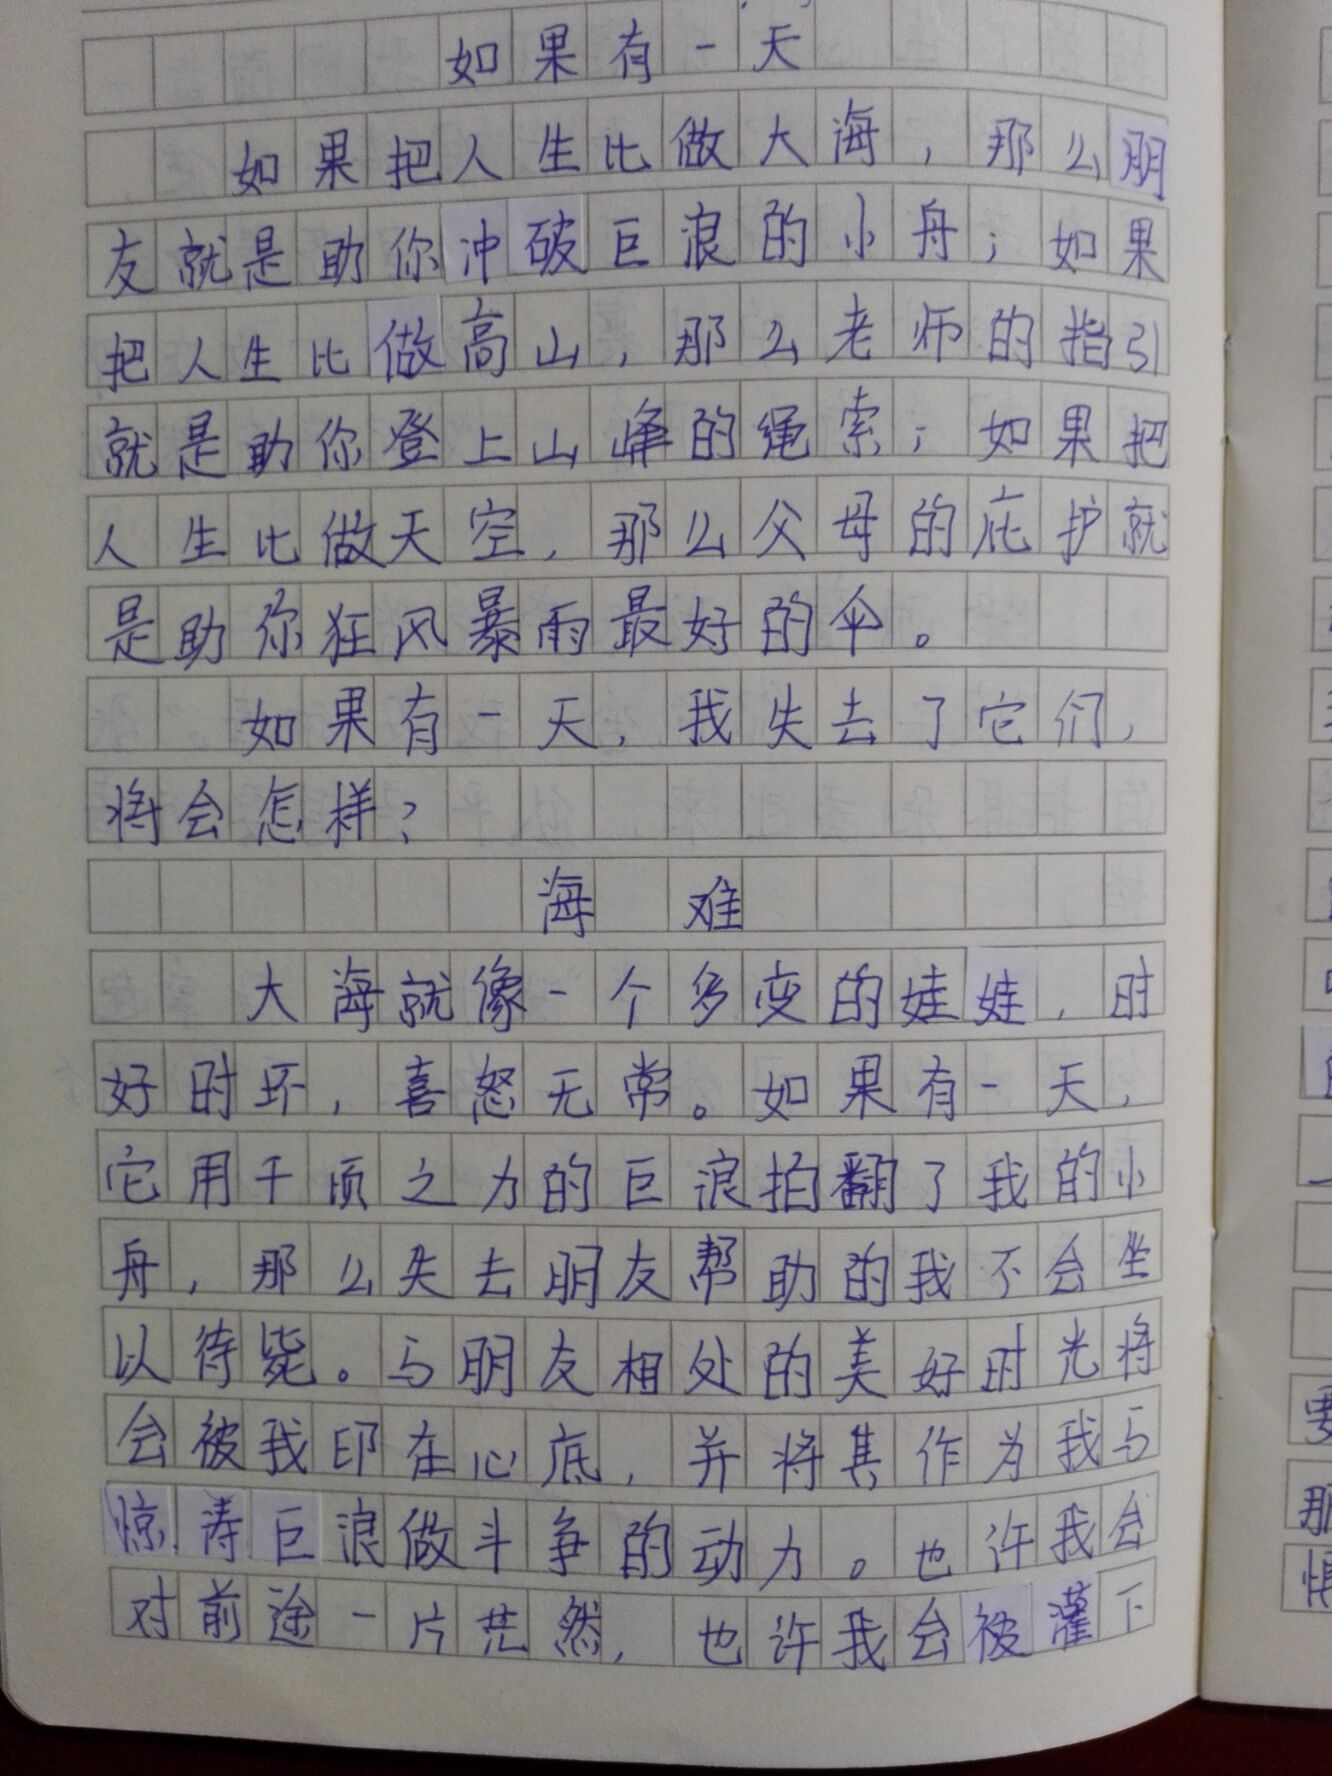 如果有一天
如果把人生比做大海，那么朋
友就是助你冲破巨浪的小舟；如果
把人生比做高山，那么老师的指引
就是助你登上山峰的绳索；如果把
人生比做天空，那么父母的庇护就
是助你狂风暴雨最好的伞。
如果有一天，我失去了它们，
将会怎样？
海难
大海就像一个多变的娃娃，时
好时坏，喜怒无常。如果有一天，
它用千顷之力的巨浪拍翻了我的小
舟，那么失去朋友帮助的我不会坐
以待毙。与朋友相处的美好时光将
会被我印在心底，并将其作为我与
惊涛巨浪做斗争的动力。也许我会
对前途一片茫然，也许我会被灌下
要